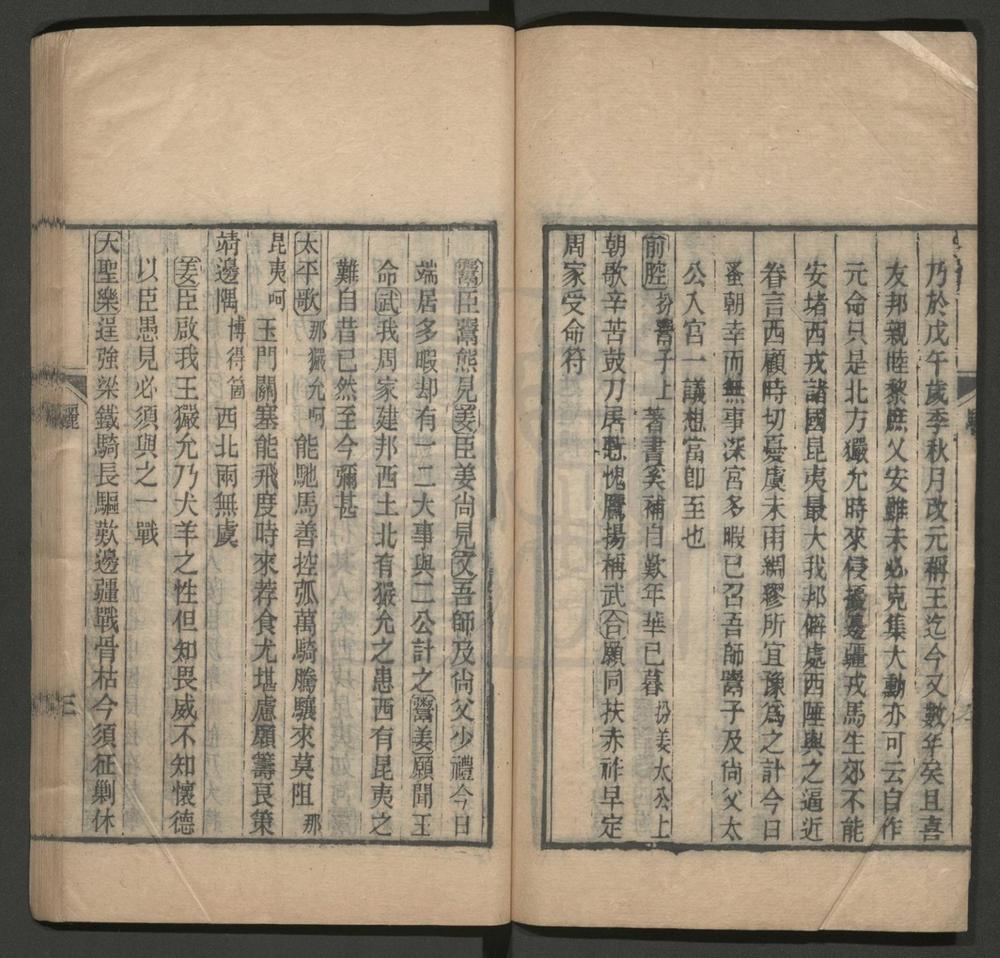 乃於戊午歲季秋月改元稱王迄今又數年矣且喜
友邦親睦黎庶乂安雖未必克集大勳亦可云自作
元命只是北方玁允時來侵擾邊疆戎馬生郊不能
安堵西戎諸國昆夷最大我邦僻處西陲與之逼近
眷言西顧時切憂虞未雨綢繆所宜豫爲之計今日
蚤朝幸而無事深宮多暇已召吾師鬻子及尙父太
公入宮一議想當卽至也
前腔扮鬻子上著書奚補自歎年華已暮扮姜太公上
朝歌辛苦鼓刀居肆愧鷹揚稱武合願同扶赤祚早定
周家受命符
鬻臣鬻熊見姜臣姜尙見文吾師及尙父少禮今日
端居多暇却有一二大事與二公計之鬻姜願聞王
命武我周家建邦西土北有玁允之患西有昆夷之
難自昔已然至今彌甚
太平歌那玁允呵能馳馬善控弧萬騎騰驤來莫阻那
昆夷呵玉門關塞能飛度時來荐食尤堪慮願籌良策
靖邊隅博得箇西北兩無虞
姜臣啟我王玁允乃犬羊之性但知畏威不知懷德
以臣愚見必須與之一戰
大聖樂逞強梁鐵騎長驅歎邊疆戰骨枯今須征剿休
三